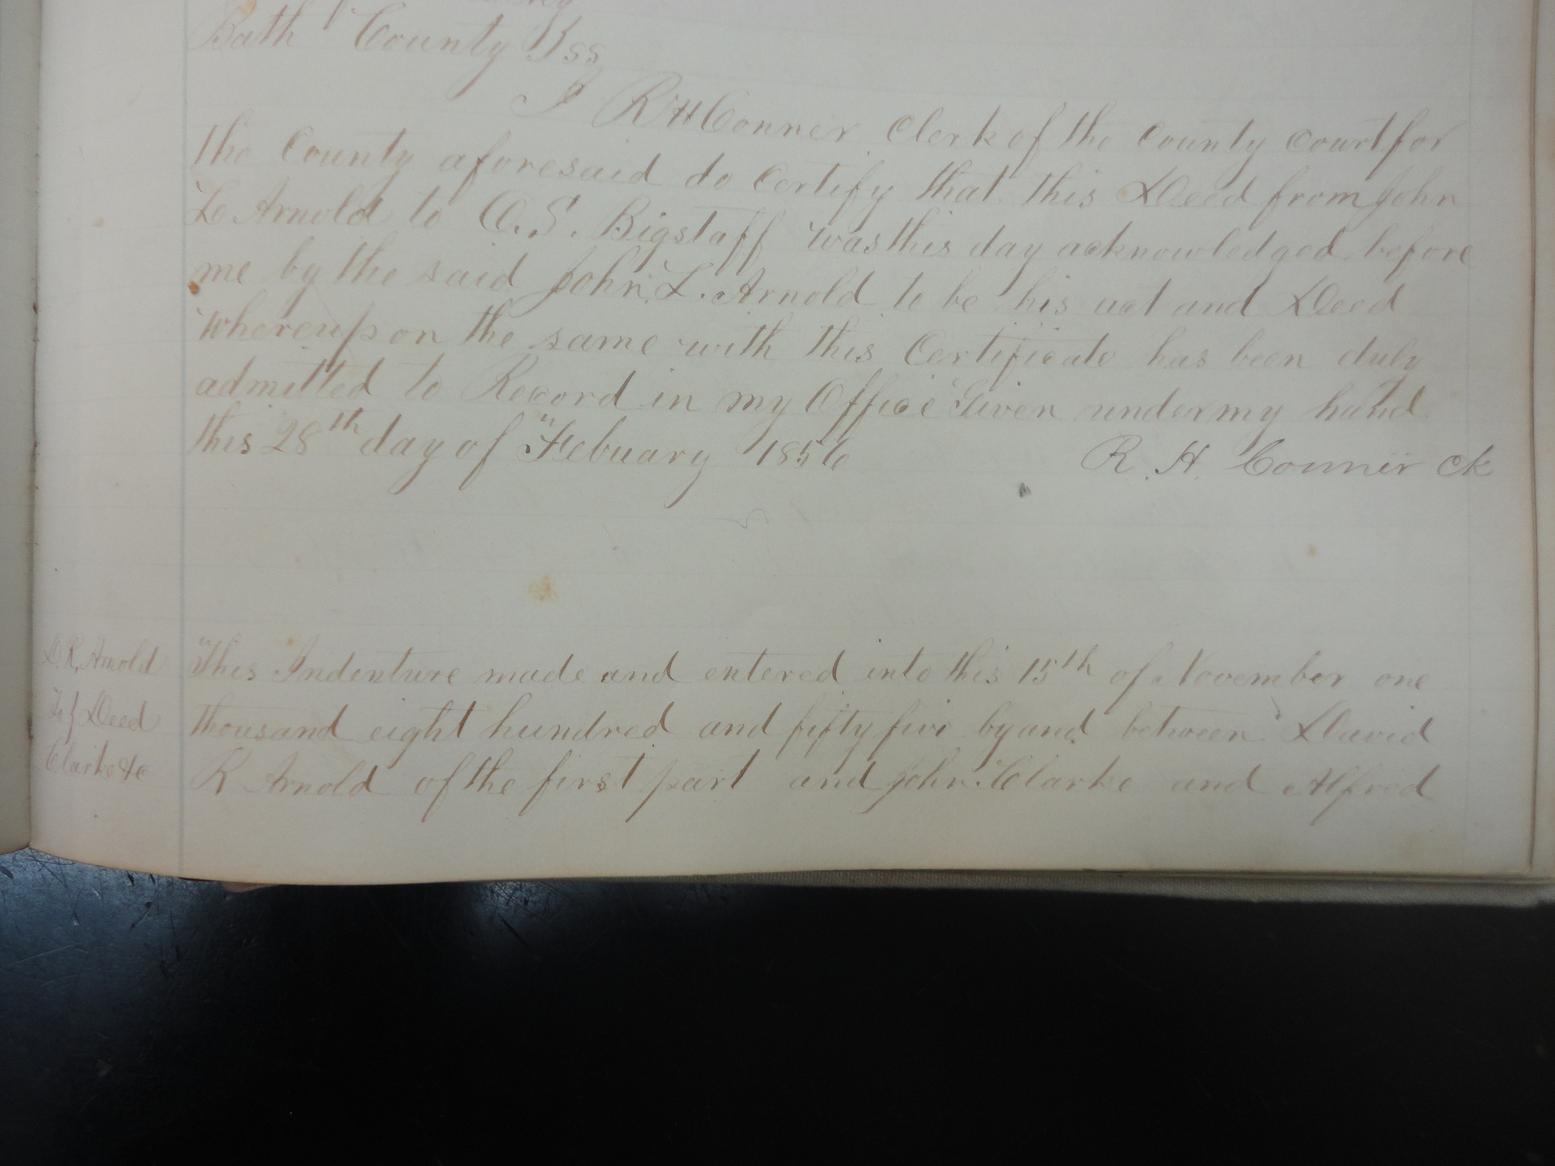 Bath County } ss
I R H Conner Clerk of the County Court for
the County aforesaid do Certify that this Deed from John
L Arnold to O. S. Bigstaff was this day acknowledged before
me by the said John L. Arnold to be his act and Deed
whereupon the same with this Certificate has been duly
admitted to Record in my Office Given under my hand
this 28th day of Febuary 1856 R. H. Conner Ck
D. R. Arnold
To } Deed
Clarke &c
This Indenture made and entered into this 15th of November one
thousand eight hundred and fifty five by and between David
R Arnold of the first part and John Clarke and Alfred